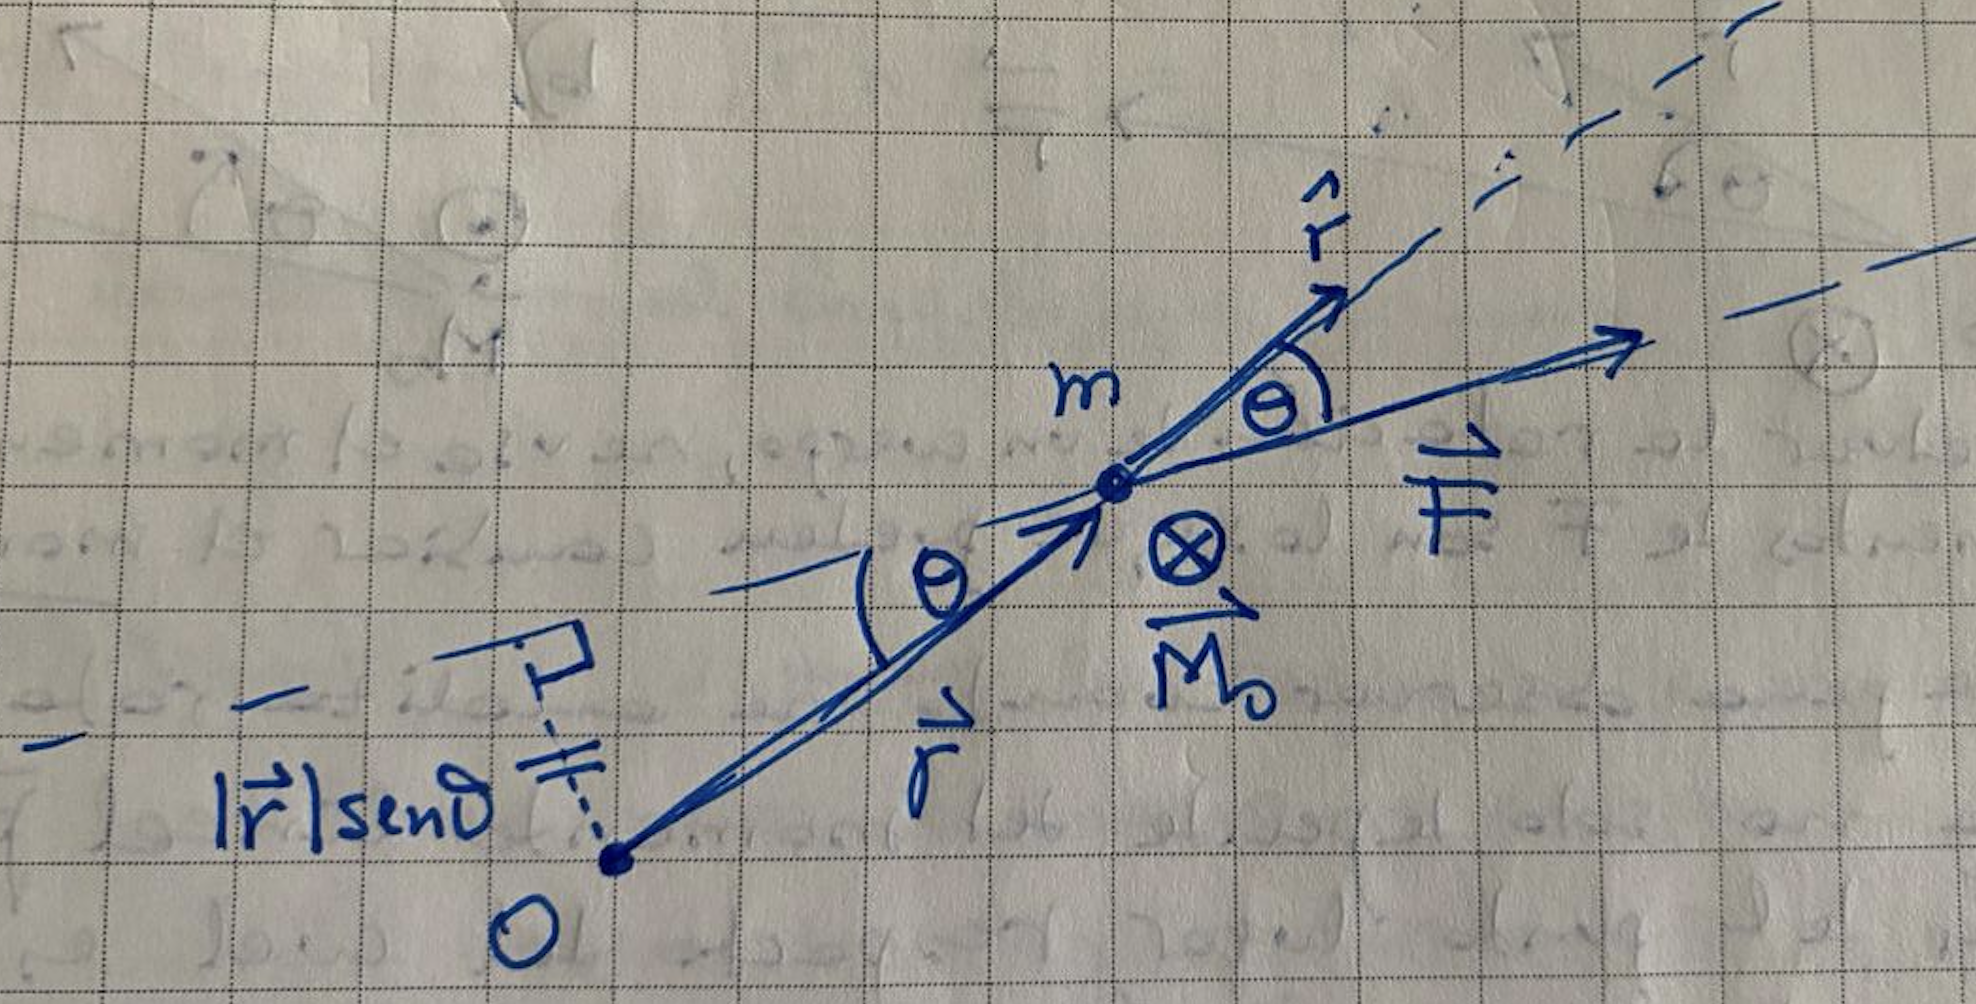 r̂
m
θ
F⃗
θ
⊗
M⃗₀
r⃗
|r⃗|senθ
O